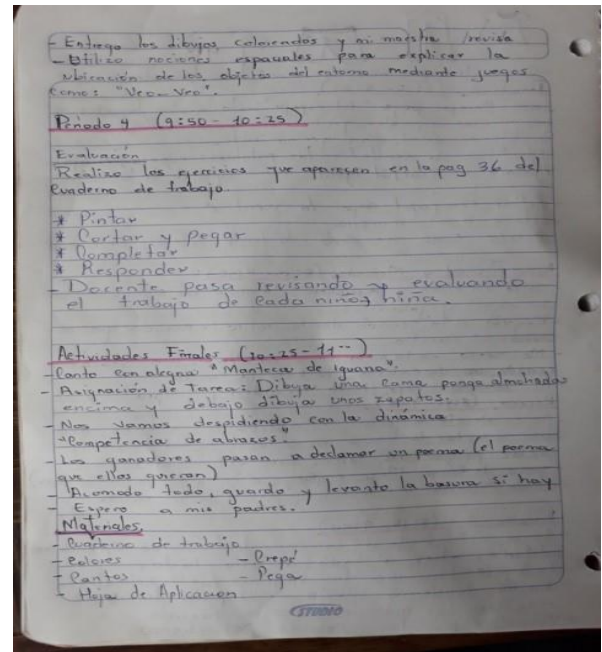 - Entrego los dibujos coloreados y mi maestra revisa
- Utilizo nociones espaciales para explicar la
ubicación de los objetos del entorno mediante juegos
como: "Veo-Veo".
Periodo 4 (9:50 - 10:25)
Evaluación
Realizo los ejercicios que aparecen en la pag 36 del
cuaderno de trabajo.
* Pintar
* Cortar y pegar
* Completar
* Responder
- Docente pasa revisando y evaluando
el trabajo de cada niño y niña.
Actividades Finales (10:25 - 11--)
- Canto con alegria "Manteca de iguana".
- Asignación de Tarea: Dibuja una cama ponga almohada
encima y debajo dibuja unos zapatos.
- Nos vamos despidiendo con la dinámica
"Competencia de abrazos."
- Los ganadores pasan a declamar un poema (el poema
que ellos quieran)
- Acomodo todo, guardo y levanto la basura si hay
- Espero a mis padres.
Materiales.
- Cuaderno de trabajo
- Colores - Crepé
- Cantos - Pega
- Hoja de Aplicacion
STUDIO